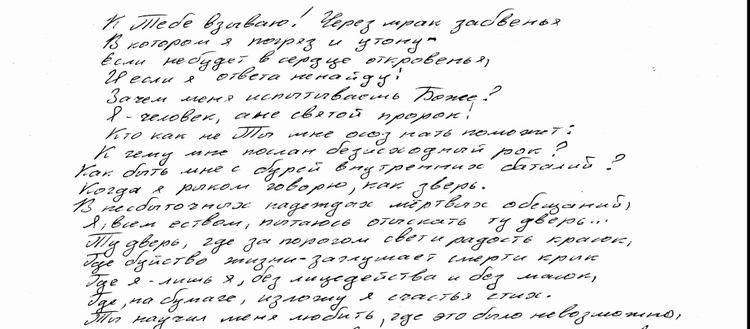 К Тебе взываю! Через мрак забвенья
В котором я погряз и утону-
Если небудет в сердце откровенья,
И если я ответа ненайду!
Зачем меня испытываешь Боже?
Я-человек, а не святой пророк!
Кто как не Ты мне осознать поможет:
К чему мне послан безисходный рок?
Как быть мне с бурей внутренних баталий?
Когда я рыком говорю, как зверь.
В несбыточных надеждах мёртвых обещаний,
Я, всем еством, пытаюсь отыскать ту дверь...
Ту дверь, где за порогом свет и радость красок,
Где буйство жизни-заглушает смерти крик
Где я-лишь я, без лицедейства и без масок,
Где, на бумаге, изложу я счастья стих.
Ты научил меня любить, где это было невозможно,